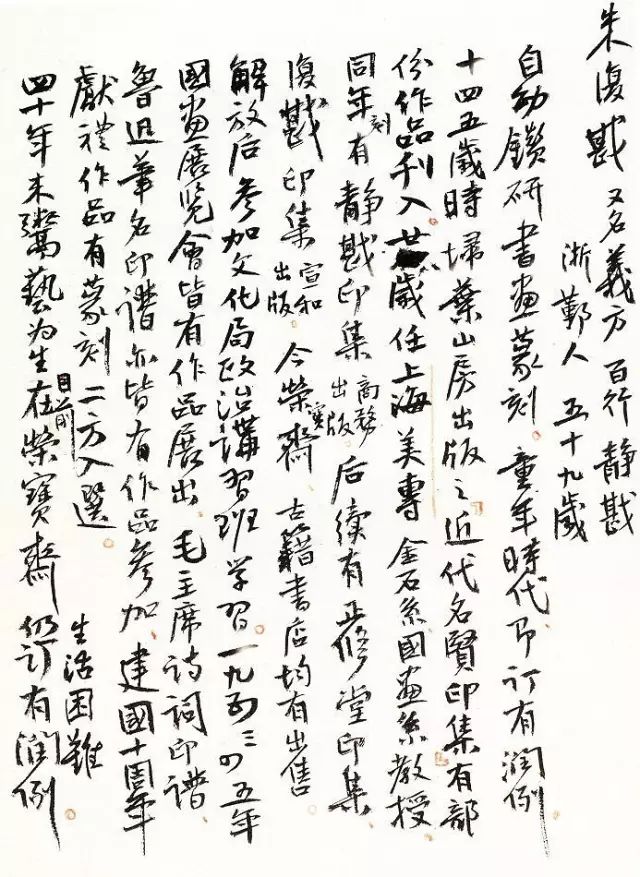 朱復戡 又名義方 百行 静戡
浙鄞人 五十九歲
自幼鑽研書画篆刻 童年時代即訂有潤例
十四五歲時掃葉山房出版之近代名賢印集有部
份作品刊入 廿歲任上海美專金石系國畫系教授
同年有刻静戡印集 商務出版 后續有正修堂印集
復戡印集 宣和出版 今榮寶齋 古籍書店均有出售
解放后參加文化局政治講習班学習 一九五三四五年
國畫展览會皆有作品展出 毛主席诗詞印譜
魯迅筆名印譜亦皆有作品參加 建國十周年
獻禮作品有篆刻二方入選
四十年来鬻藝为生 目前在榮寶齋仍订有潤例
生活困難